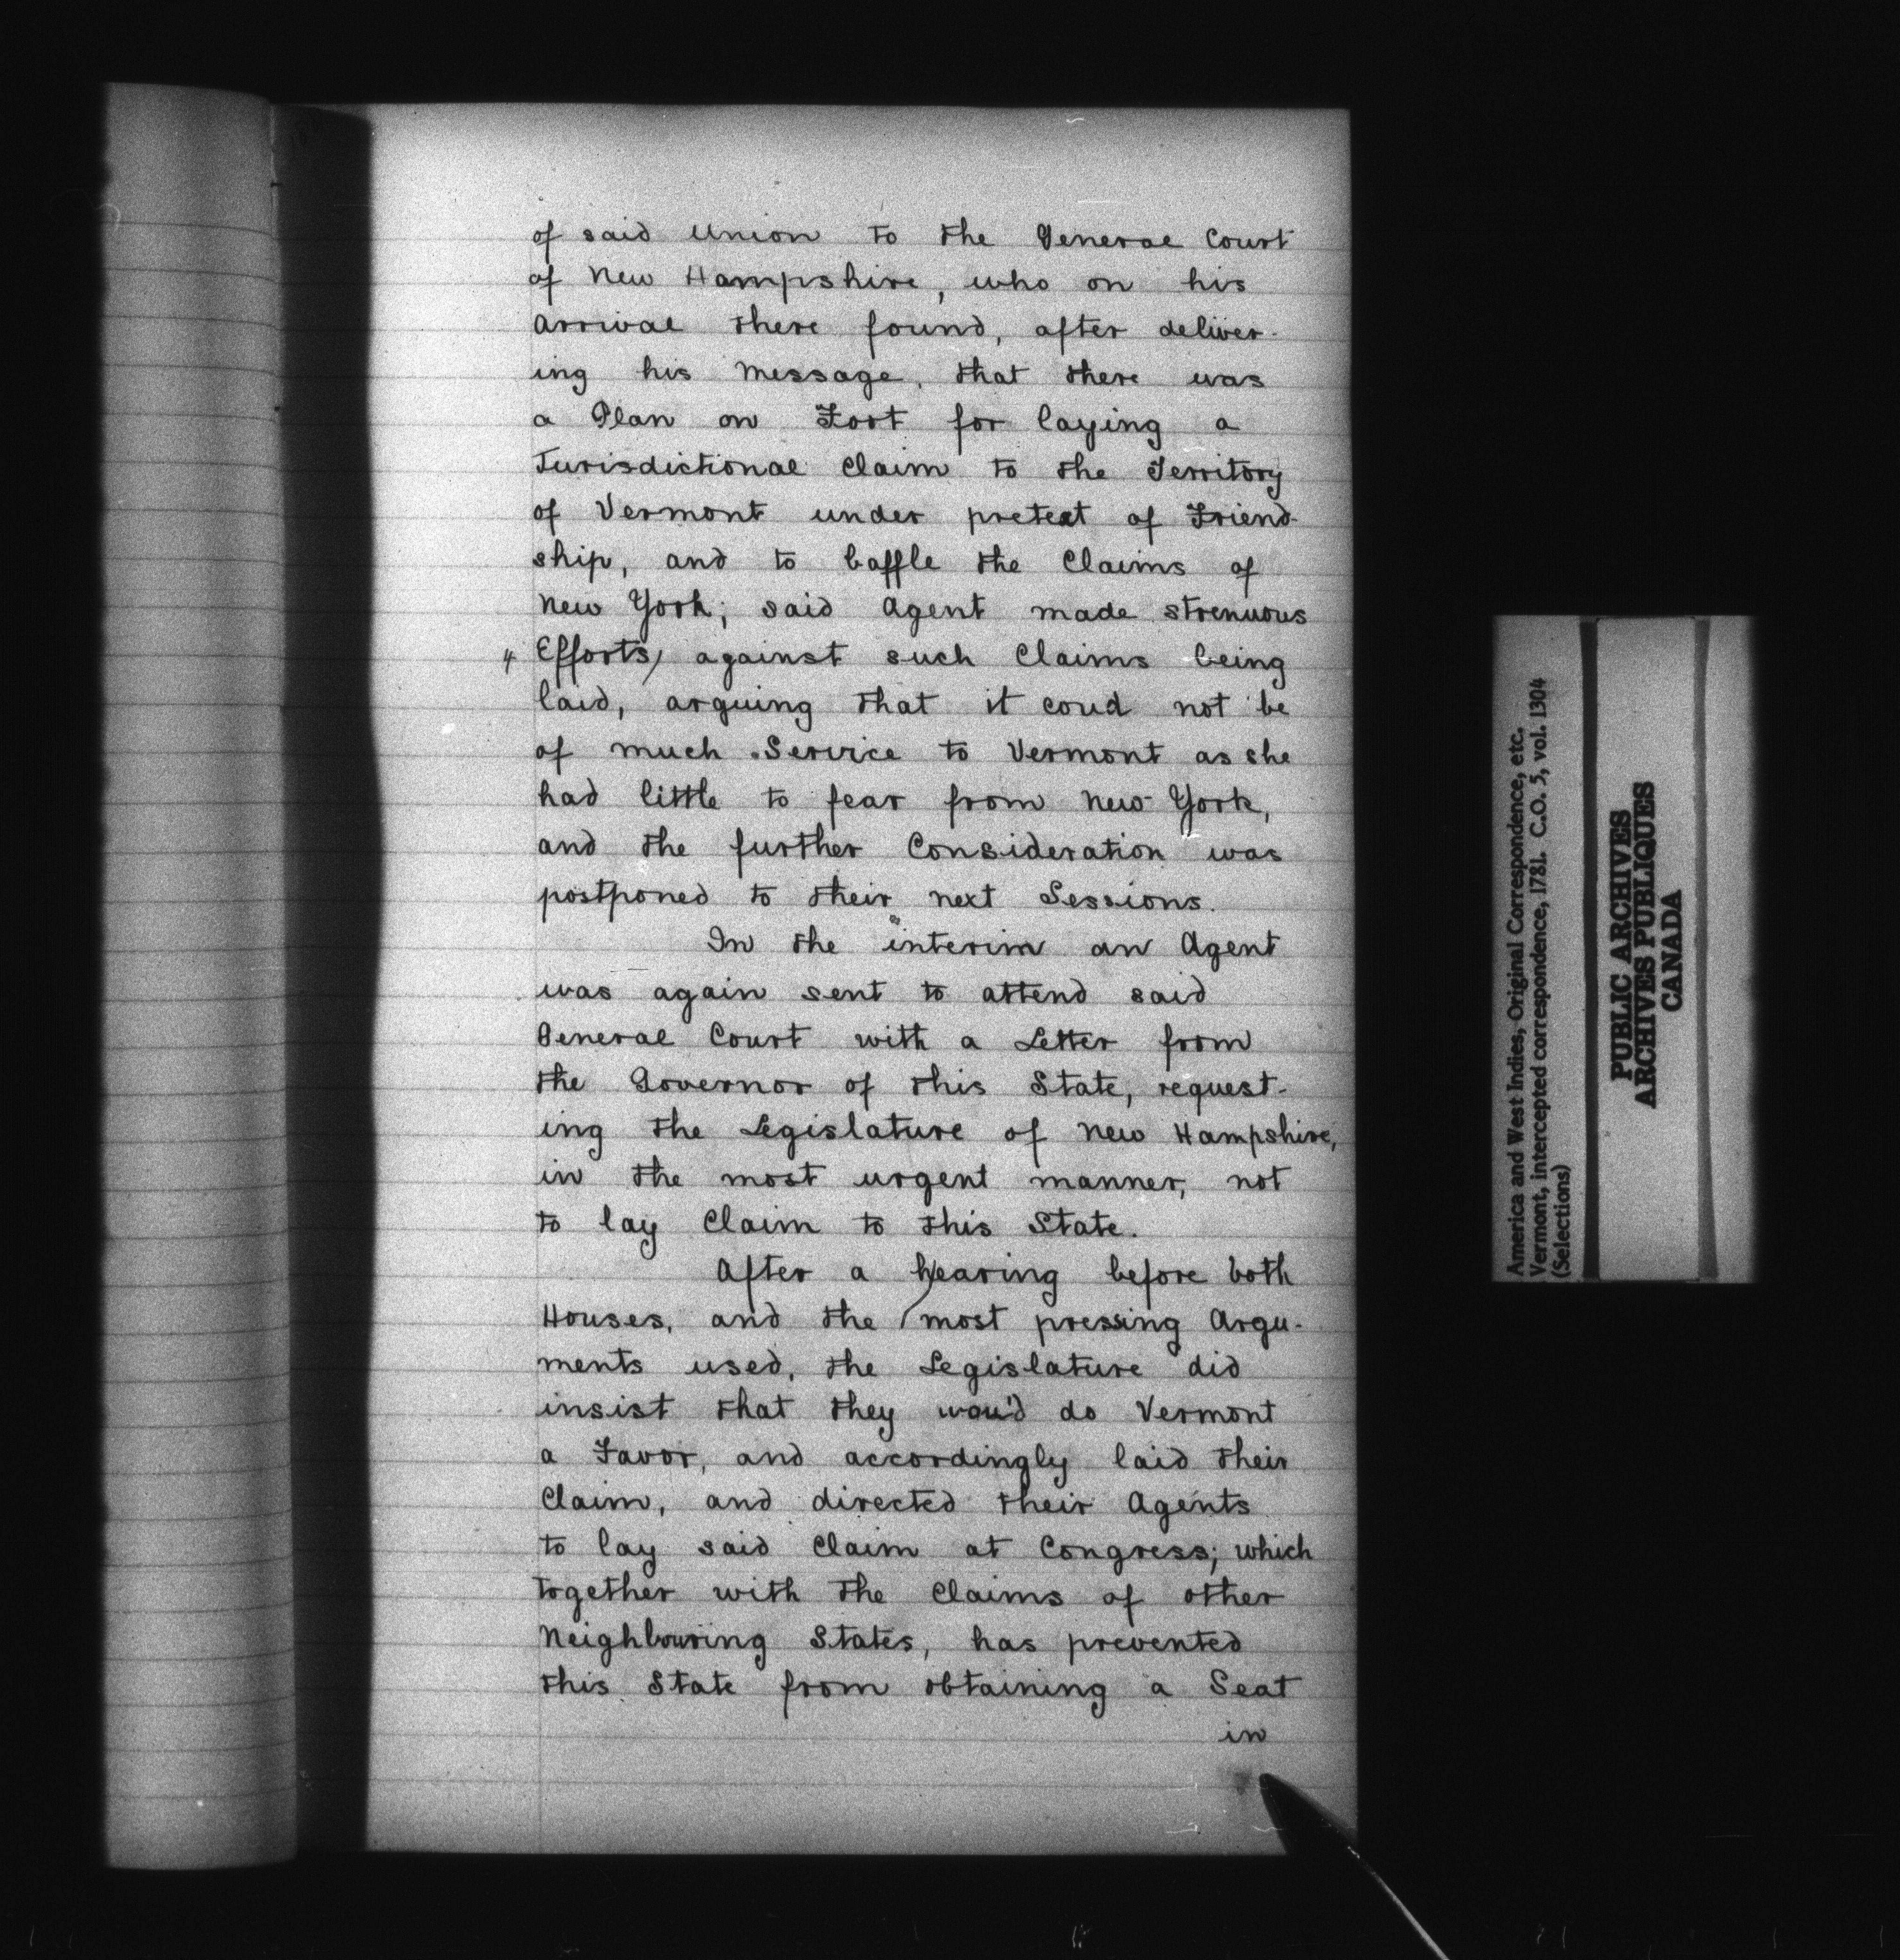 of said Union to the General Court
of New Hampshire, who on his
Arrival there found, after deliver-
ing his Message, that there was
a Plan on Foot for laying a
Jurisdictional Claim to the Territory
of Vermont under pretext of Friend-
ship, and to baffle the Claims of
New York; said Agent made strenuous
4 Efforts/ against such Claims being
laid, arguing that it coud not be
of much Service to Vermont as she
had little to fear from New York,
and the further Consideration was
postponed to their next Sessions.
In the interim an Agent
was again sent to attend said
General Court with a Letter from
the Governor of this State, request-
ing the Legislature of New Hampshire,
in the most urgent manner, not
to lay Claim to this State.
After a hearing before both
Houses, and the most pressing Argu-
ments used, the Legislature did
insist that they wou'd do Vermont
a Favor, and accordingly laid their
Claim, and directed their Agents
to lay said Claim at Congress; which
together with the Claims of other
Neighbouring States, has prevented
this State from obtaining a Seat
in
America and West Indies, Original Correspondence, etc.
Vermont, intercepted correspondence, 1781. C.O. 5, vol. 1304
(Selections)
PUBLIC ARCHIVES
ARCHIVES PUBLIQUES
CANADA